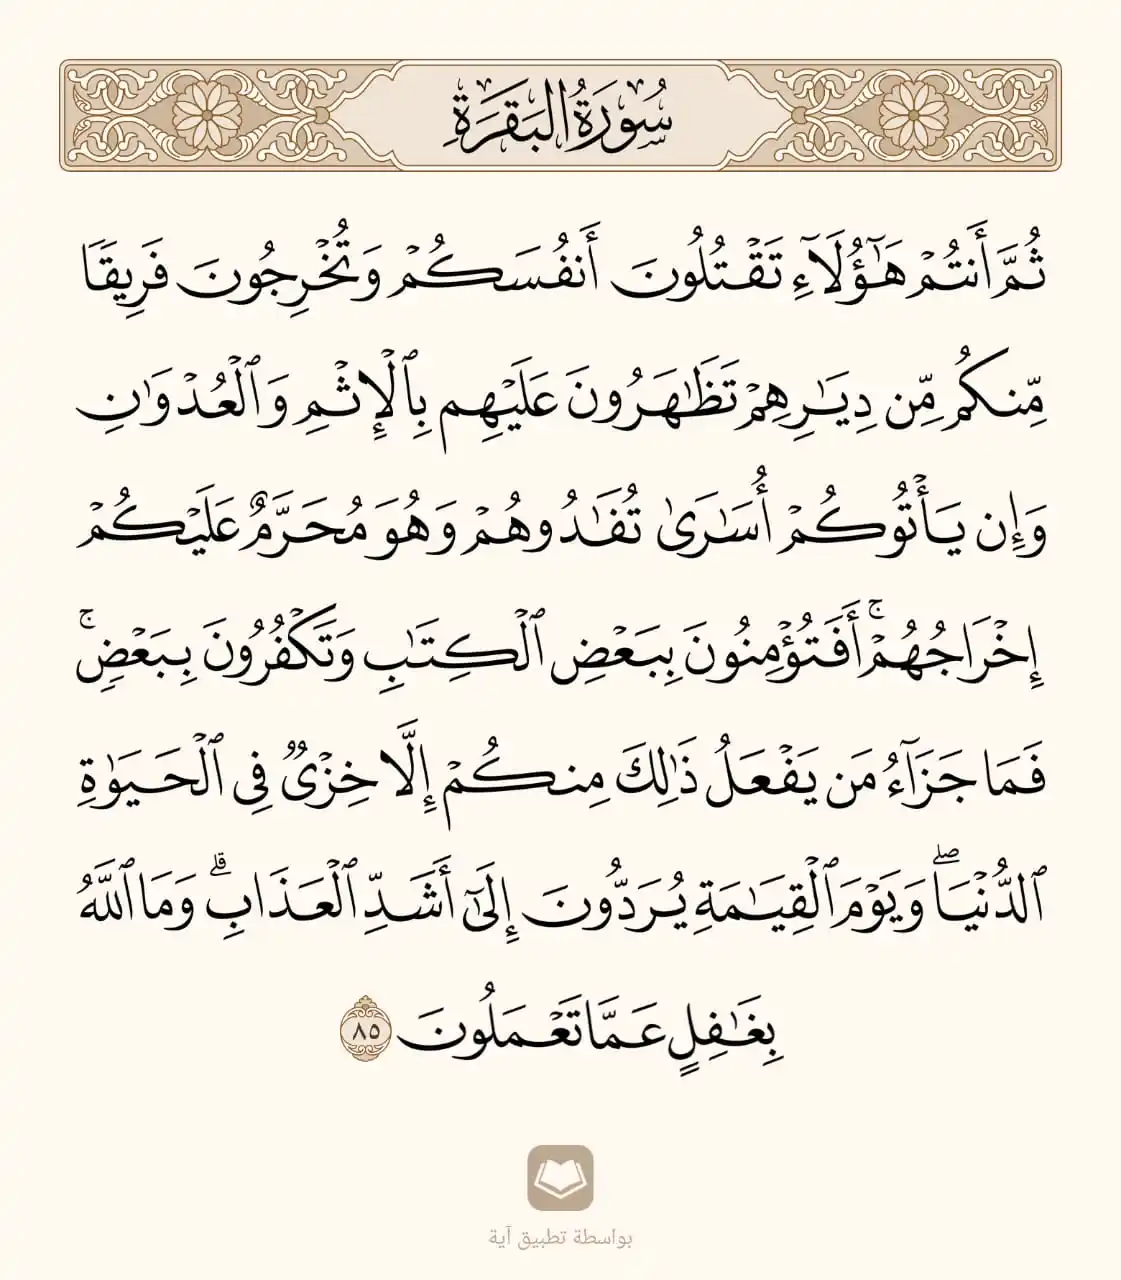 سُورَةُ البَقَرَةِ
ثُمَّ أَنتُمْ هَٰٓؤُلَآءِ تَقْتُلُونَ أَنفُسَكُمْ وَتُخْرِجُونَ فَرِيقًا
مِّنكُم مِّن دِيَٰرِهِمْ تَظَٰهَرُونَ عَلَيْهِم بِٱلْإِثْمِ وَٱلْعُدْوَٰنِ
وَإِن يَأْتُوكُمْ أُسَٰرَىٰ تُفَٰدُوهُمْ وَهُوَ مُحَرَّمٌ عَلَيْكُمْ
إِخْرَاجُهُمْ ۚ أَفَتُؤْمِنُونَ بِبَعْضِ ٱلْكِتَٰبِ وَتَكْفُرُونَ بِبَعْضٍ ۚ
فَمَا جَزَآءُ مَن يَفْعَلُ ذَٰلِكَ مِنكُمْ إِلَّا خِزْىٌ فِى ٱلْحَيَوٰةِ
ٱلدُّنْيَا ۖ وَيَوْمَ ٱلْقِيَٰمَةِ يُرَدُّونَ إِلَىٰٓ أَشَدِّ ٱلْعَذَابِ ۗ وَمَا ٱللَّهُ
بِغَٰفِلٍ عَمَّا تَعْمَلُونَ ٨٥
بواسطة تطبيق آية